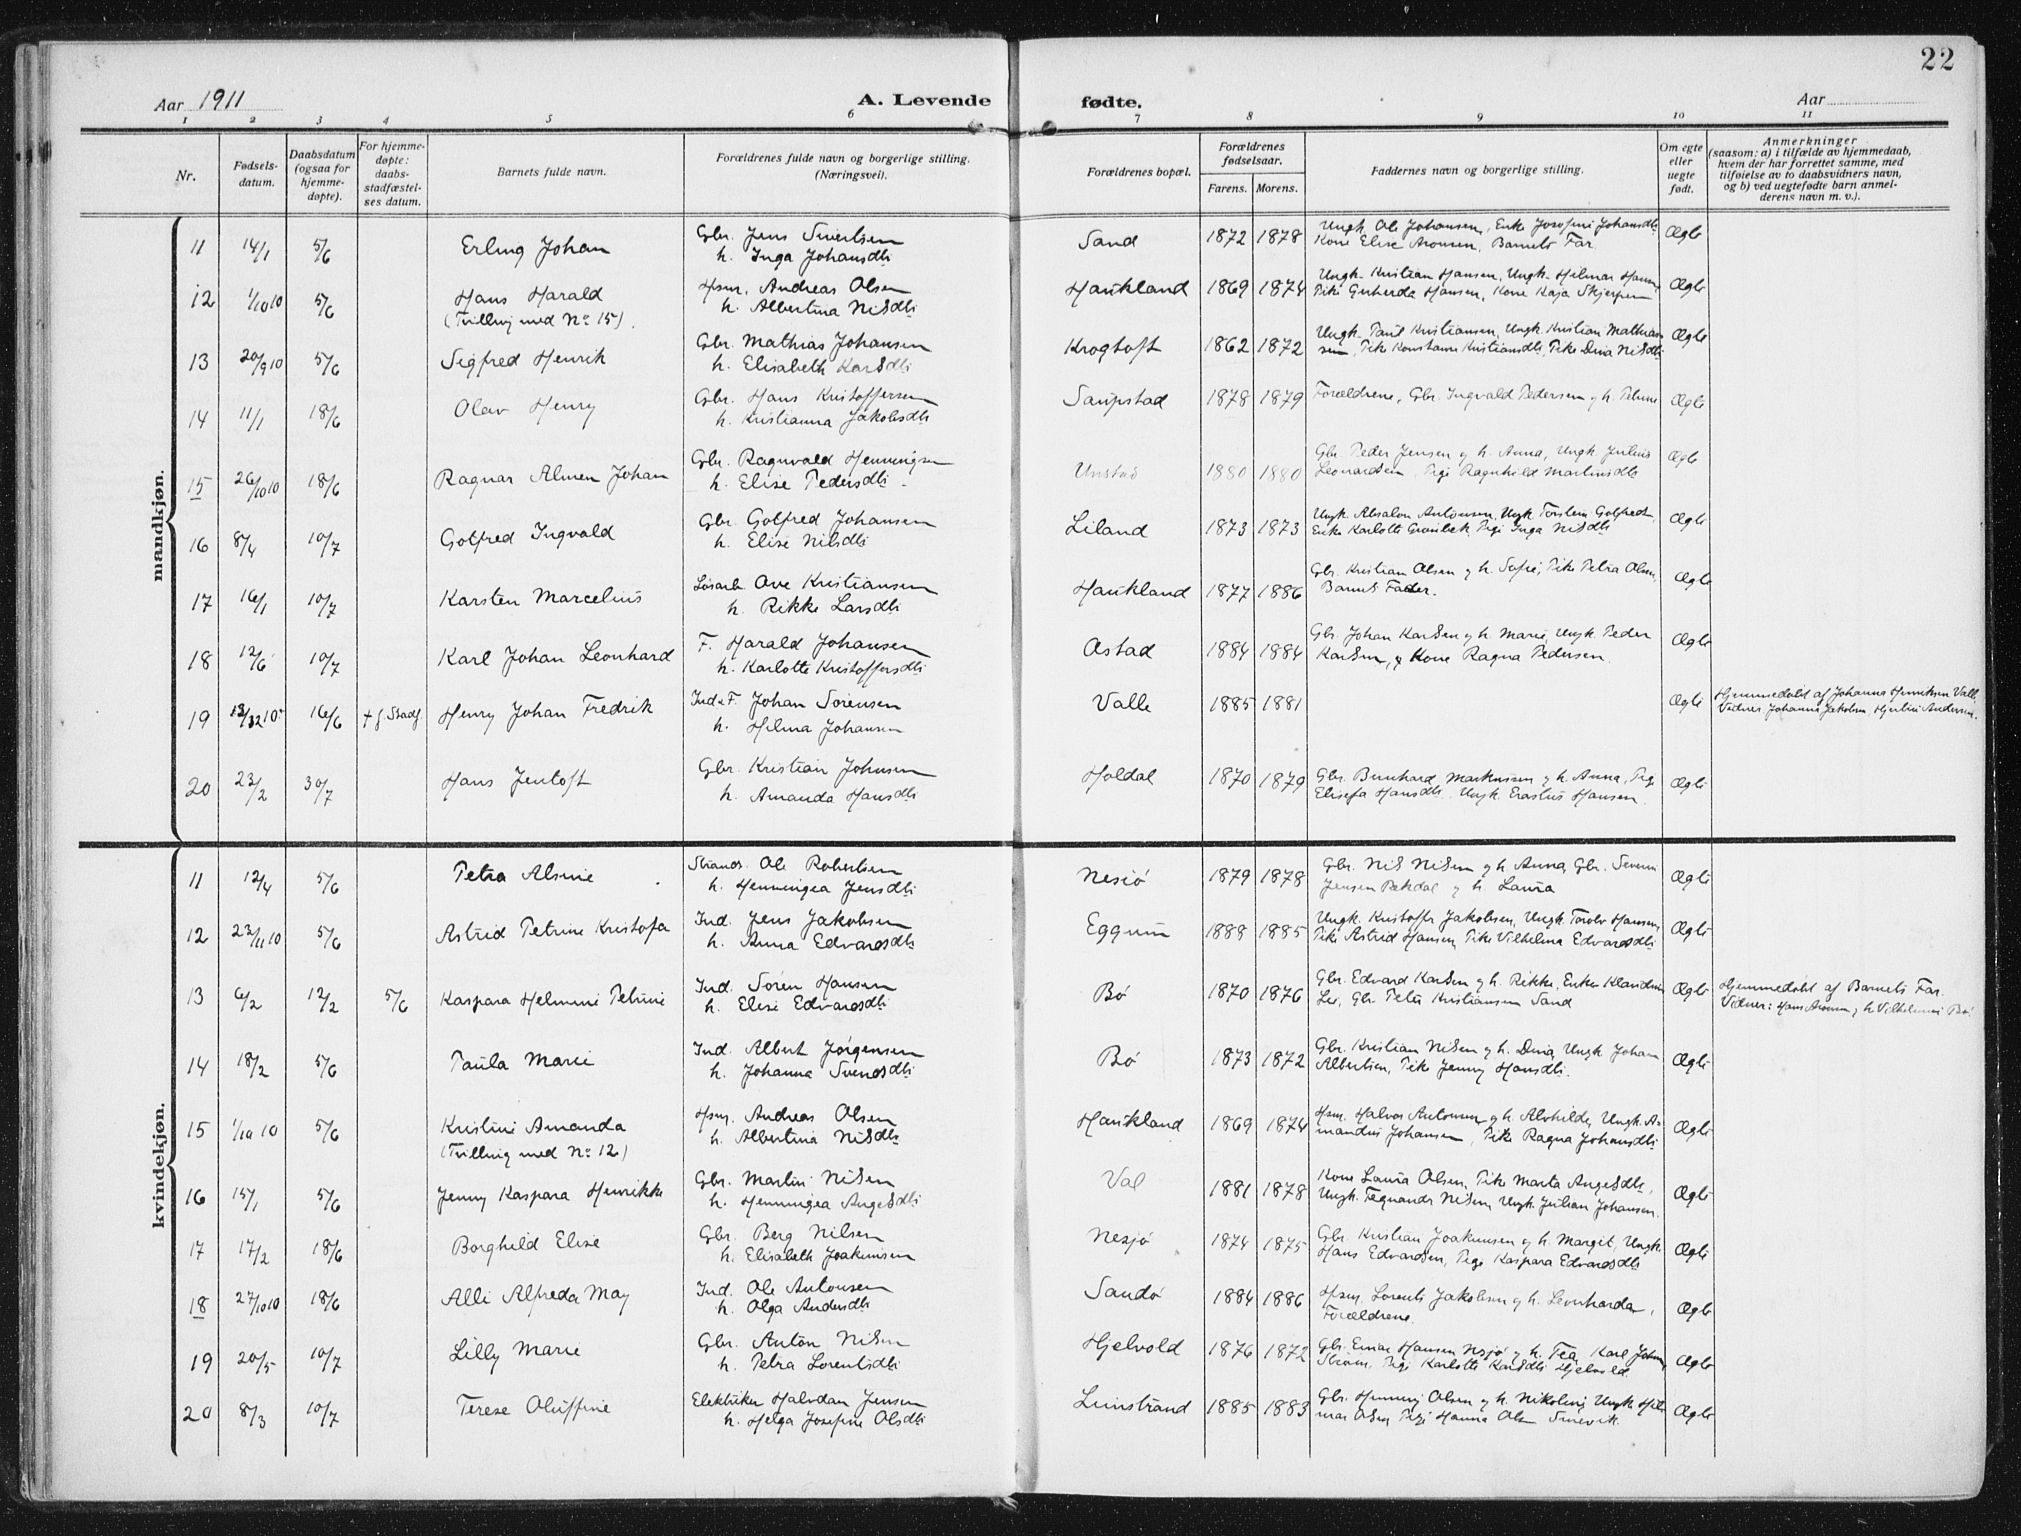 22
Aar 1911
A. Levende
fødte.
Aar
1 2 3 4 5 6 7 8 9 10 11
Nr.
Fødsels-
datum.
Daabsdatum
(ogsaa for
hjemme-
døpte).
For hjemme-
døpte:
daabs-
stadfæstel-
ses datum.
Barnets fulde navn.
Forældrenes fulde navn og borgerlige stilling.
(Næringsvei).
Forældrenes bopæl.
Forældrenes
fødselsaar.
Farens. Morens.
Faddernes navn og borgerlige stilling.
Om egte
eller
uegte
født.
Anmerkninger
(saasom: a) i tilfælde av hjemmedaab,
hvem der har forrettet samme, med
tilføielse av to daabsvidners navn,
og b) ved uegtefødte barn anmel-
derens navn m. v.).
mandkjøn.
11 14/1 5/6 Erling Johan Gbr. Jens Sivertsen Sand 1872 1878 Ungk. Ole Johansen, Enke Josefine Johansdtr Ægte
h. Inga Johansdtr Kone Elise Aronsen, Barnets Far
12 1/10 10 5/6 Hans Harald Hsm. Andreas Olsen Haukland 1869 1874 Ungk. Kristian Hansen, Ungk. Hilmar Hansen, Ægte
(Tvilling med No 15). h. Albertina Nilsdtr Pike Gerharda Hansen, Kone Kaja Skjerpen
13 20/9 10 5/6 Sigfred Henrik Gbr. Mathias Johansen Krogtoft 1862 1872 Ungk. Paul Kristiansen, Ungk. Kristian Mathias- Ægte
h. Elisabeth Karlsdtr sen, Pike Konstanse Kristiansdtr, Pike Dina Nilsdtr
14 11/1 18/6 Olav Henry Gbr. Hans Kristoffersen Saupstad 1878 1879 Forældrene, Gbr. Ingvald Pedersen og h. Petrine Ægte
h. Kristianna Jakobsdtr
15 26/10 10 18/6 Ragnar Almen Johan Gbr. Ragnvald Henningsen Unstad 1880 1880 Gbr. Peder Jensen og h. Anna, Ungk. Julius Ægte
h. Elise Pedersdtr Leonardsen, Pige Ragnhild Martinsdtr
16 8/4 10/7 Gotfred Ingvald Gbr. Gotfred Johansen Liland 1873 1873 Ungk. Absalon Antonsen, Ungk. Torstein Gotfredsen, Ægte
h. Elise Nilsdtr Enke Karlotte Grønbek, Pige Inga Nilsdtr
17 16/1 10/7 Karsten Marcelius Løsarb. Ove Kristiansen Haukland 1877 1886 Gbr. Kristian Olsen og h. Sofie, Pike Petra Olsen, Ægte
h. Rikke Larsdtr Barnets Fader.
18 12/6 10/7 Karl Johan Leonhard F. Harald Johansen Østad 1884 1884 Gbr. Johan Karlsen og h. Marie, Ungk. Peder Ægte
h. Karlotte Kristoffersdtr Karlsen, og Kone Ragna Pedersen.
19 10 16/6 + f. Stadf. Henry Johan Fredrik Ind. & F. Johan Sørensen Valle 1885 1881 Ægte Hjemmedøbt af Johanna Henriksen Valle.
h. Helma Johansen Vidner Johanna Jakobsen Andersen.
20 23/2 30/7 Hans Jentoft Gbr. Kristian Johnsen Holdal 1870 1879 Gbr. Bernhard Markussen og h. Anna, Pige Ægte
h. Amanda Hansdtr Elisefa Hansdtr. Ungk. Erastus Hansen.
kvindekjøn.
11 12/4 5/6 Petra Alsine Strands. Ole Robertsen Nesjø 1879 1878 Gbr. Nils Nilsen og h. Anna, Gbr. Severin Ægte
h. Henningea Jensdtr Jensen Rekdal og h. Laura
12 23/11 10 5/6 Astrid Petrine Kristofa Ind. Jens Jakobsen Eggum 1888 1885 Ungk. Kristoffer Jakobsen, Ungk. Torolv Hansen, Ægte
h. Anna Edvardsdtr Pike Astrid Hansen, Pike Vilhelma Edvardsdtr
13 6/2 12/2 5/6 Kaspara Helmine Petrine Ind. Sören Hansen Bø 1870 1876 Gbr. Edvard Karlsen og h. Rikke, Enke Klandine Ægte Hjemmedøbt af Barnets Far.
h. Elise Edvardsdtr Lie, Gbr. Peter Kristiansen Sand Vidner: Hans Aronsen og h. Vilhelmine Bø.
14 18/2 5/6 Paula Marie Ind. Albert Jørgensen Bø 1873 1872 Gbr. Kristian Nilsen og h. Dina, Ungk. Johan Ægte
h. Johanna Svendsdtr Albertsen, Pike Jenny Hansdtr.
15 1/10 10 5/6 Kristine Amanda Hsm. Andreas Olsen Haukland 1869 1874 Hsm. Halvor Antonsen og h. Alvhilde, Ungk. A- Ægte
(Tvilling med No 12) h. Albertina Nilsdtr mandus Johansen, Pike Ragna Johansdtr
16 15/1 5/6 Jenny Kaspara Henrikke Gbr. Martin Nilsen Val 1881 1878 Kone Laura Olsen, Pike Marta Angelsdtr, Ægte
h. Henningea Angelsdtr Ungk. Fegnander Nilsen, Ungk. Julian Johansen.
17 17/2 18/6 Borghild Elise Gbr. Berg Nilsen Nesjø 1874 1875 Gbr. Kristian Joakimsen og h. Margit, Ungk. Ægte
h. Elisabeth Joakimsen Hans Edvardsen, Pige Kaspara Edvardsdtr
18 27/10 10 18/6 Alli Alfreda May Ind. Ole Antonsen Sandø 1884 1886 Hsm. Lorents Jakobsen og h. Leonharda, Ægte
h. Olga Andersdtr Forældrene.
19 20/5 10/7 Lilly Marie Gbr. Anton Nilsen Hjelvold 1876 1872 Gbr. Einar Hansen Nesjø og h. Tea, Karl Johan Ægte
h. Petra Lorentsdtr Strøm, Pige Karlotte Karlsdtr Hjelvold
20 8/3 10/7 Terese Oluffine Elektriker Halvdan Jensen Limstrand 1885 1883 Gbr. Henning Olsen og h. Nikoline, Ungk. Hil- Ægte
h. Helga Josefine Olsdtr mar Olsen, Pige Hanna Olsen Smevik.